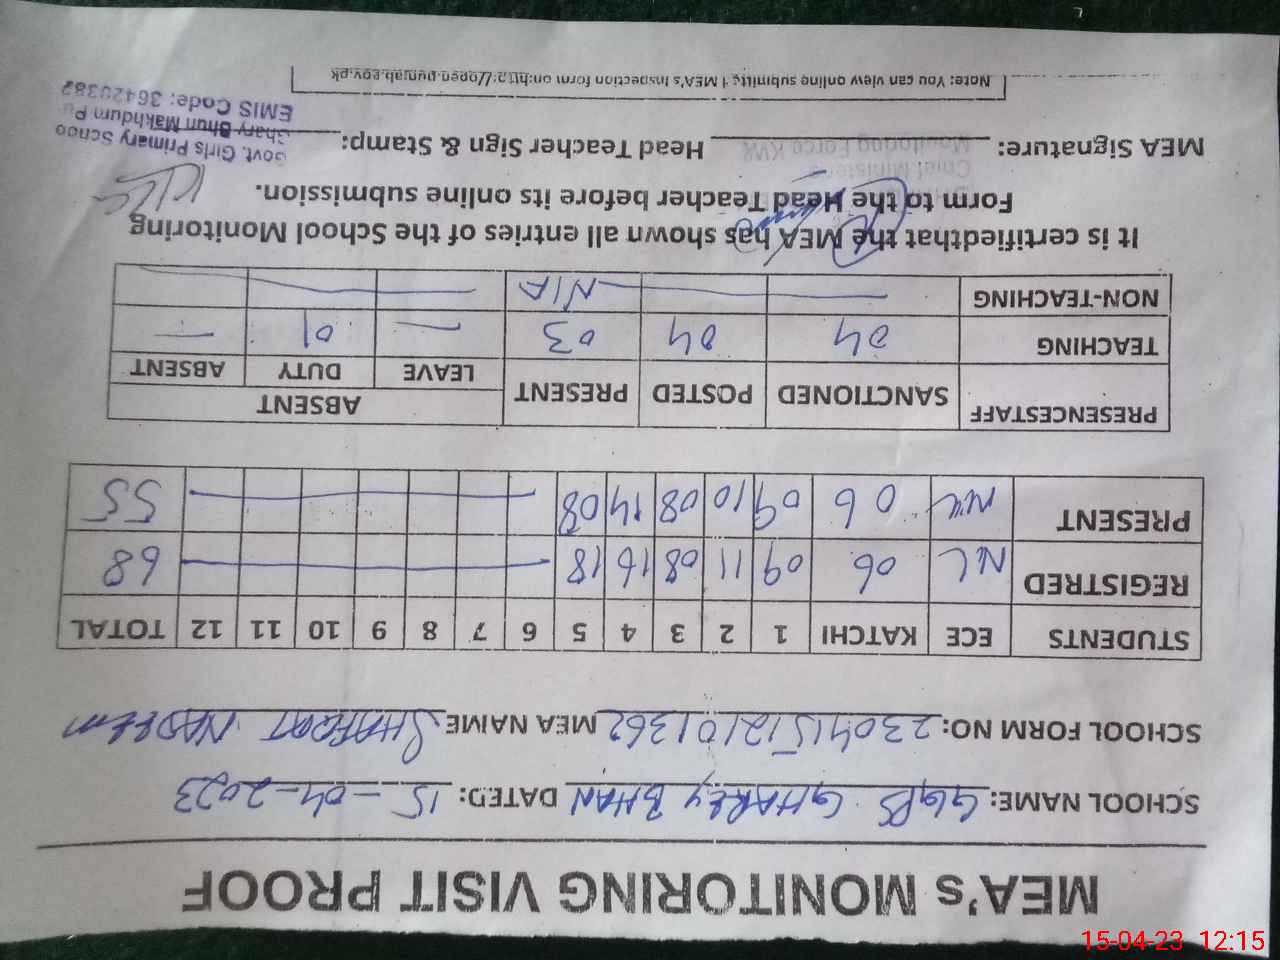 MEA's MONITORING VISIT PROOF
SCHOOL NAME: GGPS GHAREY BHAN DATED: 15-04-2023
SCHOOL FORM NO: 23041512101362 MEA NAME SHAFQAT NADEEM
STUDENTS ECE KATCHI 1 2 3 4 5 6 7 8 9 10 11 12 TOTAL
REGISTRED NIL 06 09 11 08 16 18 68
PRESENT NIL 06 09 10 08 14 08 55
PRESENCESTAFF SANCTIONED POSTED PRESENT ABSENT
LEAVE DUTY ABSENT
TEACHING 04 04 03 — 01 —
NON-TEACHING N/A
It is certifiedthat the MEA has shown all entries of the School Monitoring
Form to the Head Teacher before its online submission.
MEA Signature: Head Teacher Sign & Stamp:
Chief Minister's
Monitoring Force
Govt. Girls Primary Schoo
Ghary Bhun Makhdum Pu
EMIS Code: 36420382
Note: You can view online submitted MEA's Inspection form on:http://open.punjab.gov.pk
15-04-23 12:15